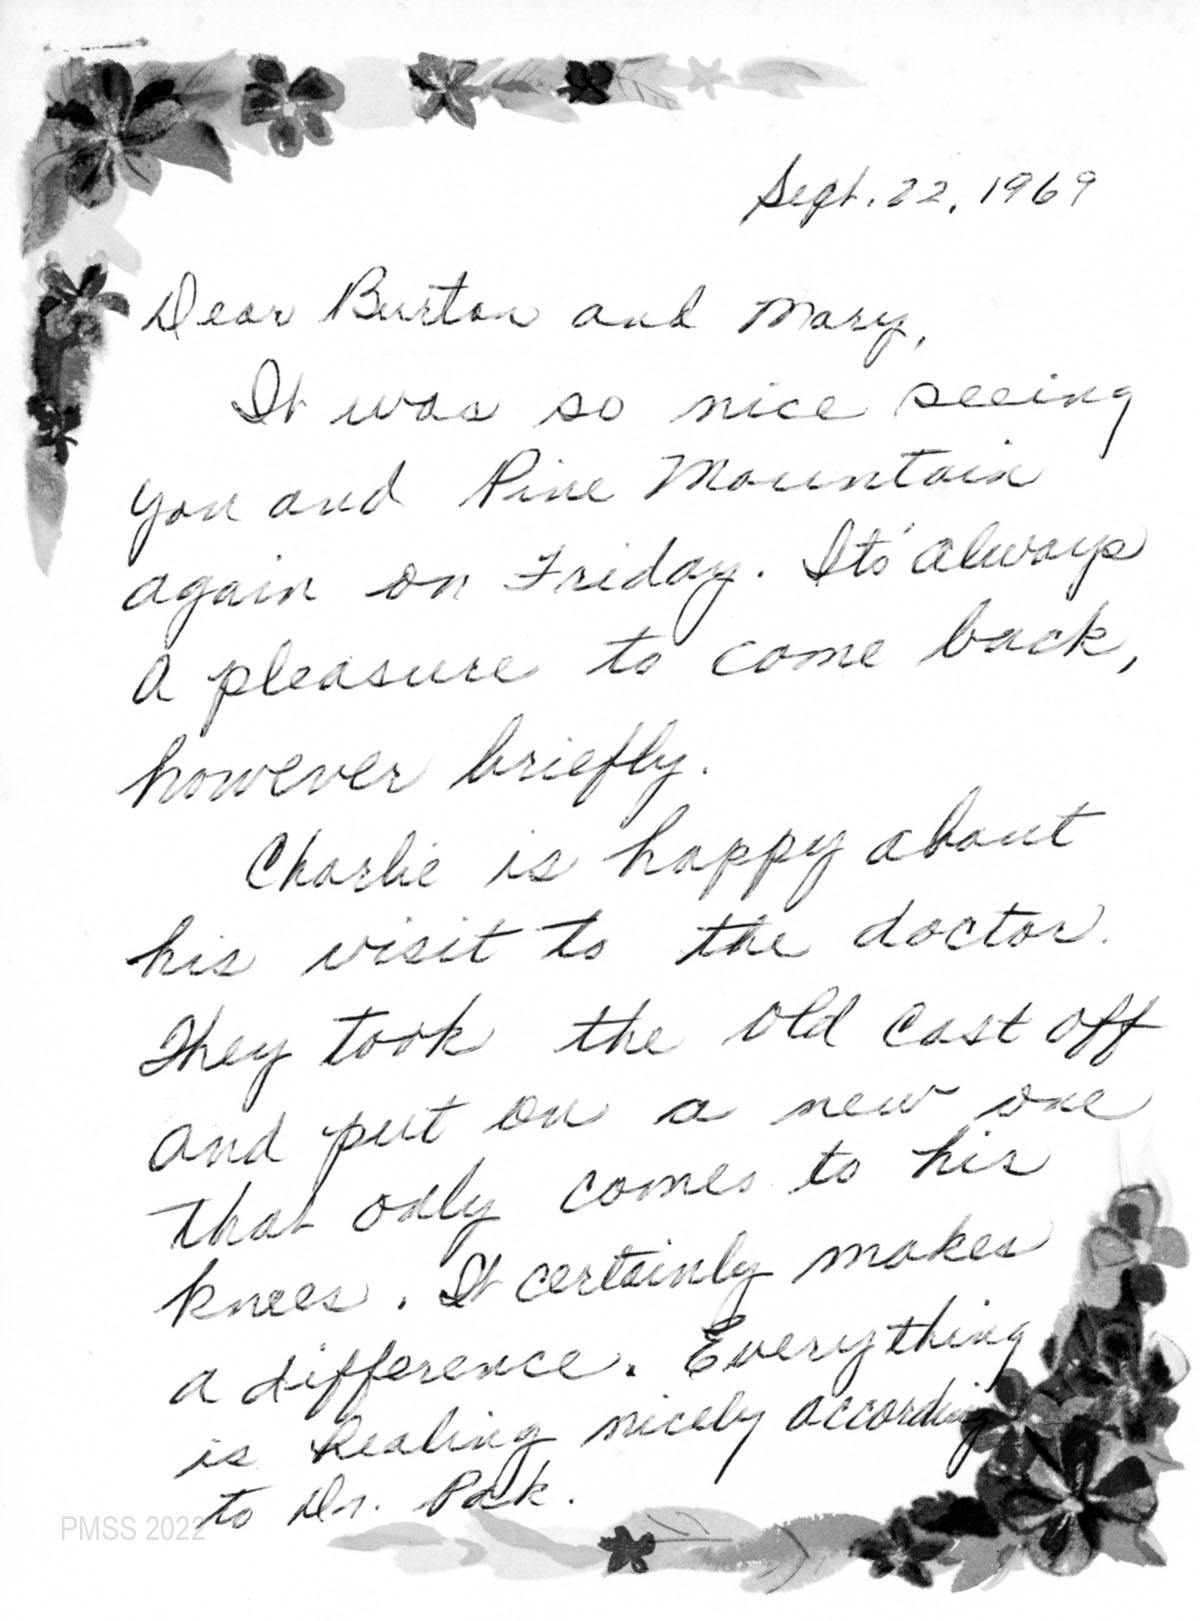 Sept. 22, 1969
Dear Burton and Mary,
It was so nice seeing
you and Pine Mountain
again on Friday. Its' always
a pleasure to come back,
however briefly.
Charlie is happy about
his visit to the doctor.
They took the old cast off
and put on a new one
that only comes to his
knees. It certainly makes
a difference. Everything
is healing nicely according
to Dr. Park.
PMSS 2022